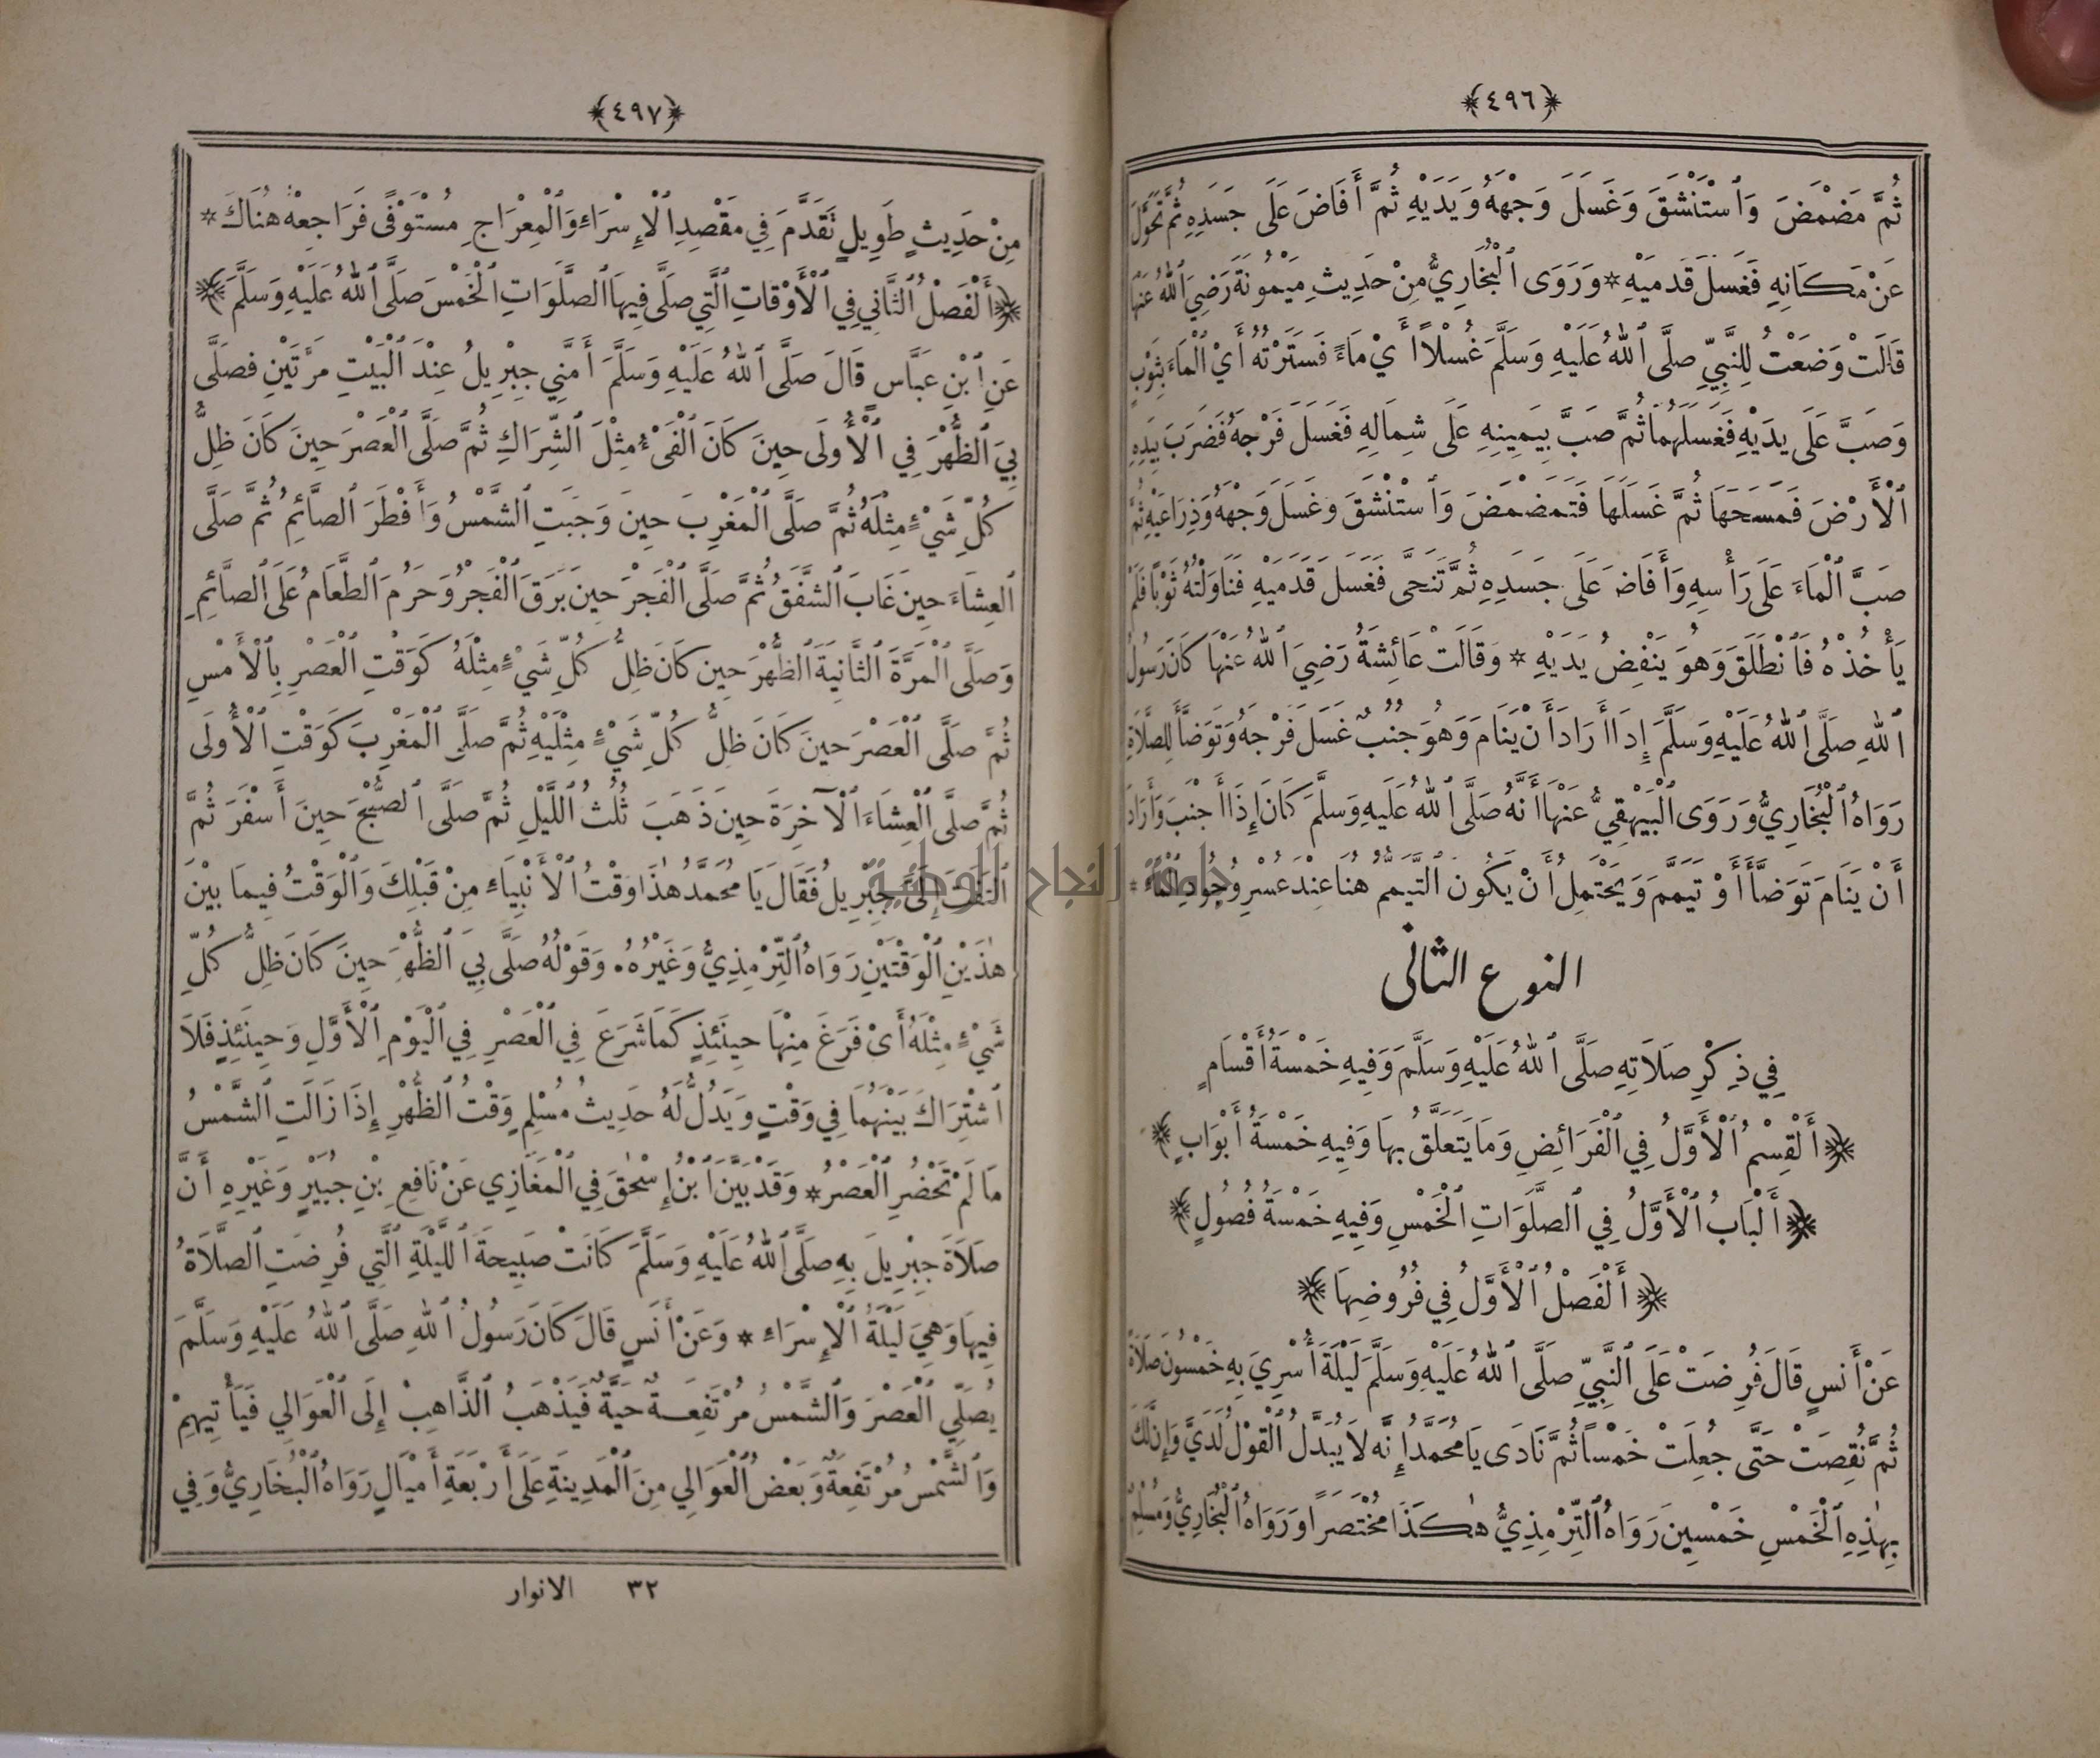 ﴿٤٩٦﴾
ثُمَّ مَضْمَضَ وَٱسْتَنْشَقَ وَغَسَلَ وَجْهَهُ وَيَدَيْهِ ثُمَّ أَفَاضَ عَلَى جَسَدِهِ ثُمَّ تَحَوَّلَ
عَنْ مَكَانِهِ فَغَسَلَ قَدَمَيْهِ * وَرَوَى ٱلْبُخَارِيُّ مِنْ حَدِيثِ مَيْمُونَةَ رَضِيَ ٱللهُ عَنْهَا
قَالَتْ وَضَعْتُ لِلنَّبِيِّ صَلَّى ٱللهُ عَلَيْهِ وَسَلَّمَ غُسْلاً أَيْ مَاءً فَسَتَرْتُهُ أَيْ ٱلْمَاءَ بِثَوْبٍ
وَصَبَّ عَلَى يَدَيْهِ فَغَسَلَهُمَا ثُمَّ صَبَّ بِيَمِينِهِ عَلَى شِمَالِهِ فَغَسَلَ فَرْجَهُ فَضَرَبَ بِيَدِهِ
ٱلْأَرْضَ فَمَسَحَهَا ثُمَّ غَسَلَهَا فَتَمَضْمَضَ وَٱسْتَنْشَقَ وَغَسَلَ وَجْهَهُ وَذِرَاعَيْهِ ثُمَّ
صَبَّ ٱلْمَاءَ عَلَى رَأْسِهِ وَأَفَاضَ عَلَى جَسَدِهِ ثُمَّ تَنَحَّى فَغَسَلَ قَدَمَيْهِ فَنَاوَلْتُهُ ثَوْبًا فَلَمْ
يَأْخُذْهُ فَٱنْطَلَقَ وَهُوَ يَنْفِضُ يَدَيْهِ * وَقَالَتْ عَائِشَةُ رَضِيَ ٱللهُ عَنْهَا كَانَ رَسُولُ
ٱللهِ صَلَّى ٱللهُ عَلَيْهِ وَسَلَّمَ إِذَا أَرَادَ أَنْ يَنَامَ وَهُوَ جُنُبٌ غَسَلَ فَرْجَهُ وَتَوَضَّأَ لِلصَّلَاةِ
رَوَاهُ ٱلْبُخَارِيُّ وَرَوَى ٱلْبَيْهَقِيُّ عَنْهَا أَنَّهُ صَلَّى ٱللهُ عَلَيْهِ وَسَلَّمَ كَانَ إِذَا أَجْنَبَ وَأَرَادَ
أَنْ يَنَامَ تَوَضَّأَ أَوْ تَيَمَّمَ وَيَحْتَمِلُ أَنْ يَكُونَ ٱلتَّيَمُّمُ هُنَا عِنْدَ عُسْرِ وُجُودِ ٱلْمَاءِ *
النوع الثانى
فِي ذِكْرِ صَلَاتِهِ صَلَّى ٱللهُ عَلَيْهِ وَسَلَّمَ وَفِيهِ خَمْسَةُ أَقْسَامٍ
﴿أَلْقِسْمُ ٱلْأَوَّلُ فِي ٱلْفَرَائِضِ وَمَا يَتَعَلَّقُ بِهَا وَفِيهِ خَمْسَةُ أَبْوَابٍ﴾
﴿أَلْبَابُ ٱلْأَوَّلُ فِي ٱلصَّلَوَاتِ ٱلْخَمْسِ وَفِيهِ خَمْسَةُ فُصُولٍ﴾
﴿أَلْفَصْلُ ٱلْأَوَّلُ فِي فُرُوضِهَا﴾
عَنْ أَنَسٍ قَالَ فُرِضَتْ عَلَى ٱلنَّبِيِّ صَلَّى ٱللهُ عَلَيْهِ وَسَلَّمَ لَيْلَةَ أُسْرِيَ بِهِ خَمْسُونَ صَلَاةً
ثُمَّ نُقِصَتْ حَتَّى جُعِلَتْ خَمْسًا ثُمَّ نَادَى يَا مُحَمَّدُ إِنَّهُ لَا يُبَدَّلُ ٱلْقَوْلُ لَدَيَّ وَإِنَّ لَكَ
بِهٰذِهِ ٱلْخَمْسِ خَمْسِينَ رَوَاهُ ٱلتِّرْمِذِيُّ هٰكَذَا مُخْتَصَرًا وَرَوَاهُ ٱلْبُخَارِيُّ وَمُسْلِمٌ
﴿٤٩٧﴾
مِنْ حَدِيثٍ طَوِيلٍ تَقَدَّمَ فِي مَقْصِدِ ٱلْإِسْرَاءِ وَٱلْمِعْرَاجِ مُسْتَوْفًى فَرَاجِعْهُ هُنَاكَ *
﴿أَلْفَصْلُ ٱلثَّانِي فِي ٱلْأَوْقَاتِ ٱلَّتِي صَلَّى فِيهَا ٱلصَّلَوَاتِ ٱلْخَمْسَ صَلَّى ٱللهُ عَلَيْهِ وَسَلَّمَ﴾
عَنِ ٱبْنِ عَبَّاسٍ قَالَ صَلَّى ٱللهُ عَلَيْهِ وَسَلَّمَ أَمَّنِي جِبْرِيلُ عِنْدَ ٱلْبَيْتِ مَرَّتَيْنِ فَصَلَّى
بِيَ ٱلظُّهْرَ فِي ٱلْأُولَى حِينَ كَانَ ٱلْفَيْءُ مِثْلَ ٱلشِّرَاكِ ثُمَّ صَلَّى ٱلْعَصْرَ حِينَ كَانَ ظِلُّ
كُلِّ شَيْءٍ مِثْلَهُ ثُمَّ صَلَّى ٱلْمَغْرِبَ حِينَ وَجَبَتِ ٱلشَّمْسُ وَأَفْطَرَ ٱلصَّائِمُ ثُمَّ صَلَّى
ٱلْعِشَاءَ حِينَ غَابَ ٱلشَّفَقُ ثُمَّ صَلَّى ٱلْفَجْرَ حِينَ بَرَقَ ٱلْفَجْرُ وَحَرُمَ ٱلطَّعَامُ عَلَى ٱلصَّائِمِ
وَصَلَّى ٱلْمَرَّةَ ٱلثَّانِيَةَ ٱلظُّهْرَ حِينَ كَانَ ظِلُّ كُلِّ شَيْءٍ مِثْلَهُ كَوَقْتِ ٱلْعَصْرِ بِٱلْأَمْسِ
ثُمَّ صَلَّى ٱلْعَصْرَ حِينَ كَانَ ظِلُّ كُلِّ شَيْءٍ مِثْلَيْهِ ثُمَّ صَلَّى ٱلْمَغْرِبَ كَوَقْتِ ٱلْأُولَى
ثُمَّ صَلَّى ٱلْعِشَاءَ ٱلْآخِرَةَ حِينَ ذَهَبَ ثُلُثُ ٱللَّيْلِ ثُمَّ صَلَّى ٱلصُّبْحَ حِينَ أَسْفَرَ ثُمَّ
ٱلْتَفَتَ إِلَيَّ جِبْرِيلُ فَقَالَ يَا مُحَمَّدُ هٰذَا وَقْتُ ٱلْأَنْبِيَاءِ مِنْ قَبْلِكَ وَٱلْوَقْتُ فِيمَا بَيْنَ
هٰذَيْنِ ٱلْوَقْتَيْنِ رَوَاهُ ٱلتِّرْمِذِيُّ وَغَيْرُهُ . وَقَوْلُهُ صَلَّى بِيَ ٱلظُّهْرَ حِينَ كَانَ ظِلُّ كُلِّ
شَيْءٍ مِثْلَهُ أَيْ فَرَغَ مِنْهَا حِينَئِذٍ كَمَا شَرَعَ فِي ٱلْعَصْرِ فِي ٱلْيَوْمِ ٱلْأَوَّلِ وَحِينَئِذٍ فَلَا
ٱشْتِرَاكَ بَيْنَهُمَا فِي وَقْتٍ وَيَدُلُّ لَهُ حَدِيثُ مُسْلِمٍ وَقْتُ ٱلظُّهْرِ إِذَا زَالَتِ ٱلشَّمْسُ
مَا لَمْ تَحْضُرِ ٱلْعَصْرُ * وَقَدْ بَيَّنَ ٱبْنُ إِسْحٰقَ فِي ٱلْمَغَازِي عَنْ نَافِعِ بْنِ جُبَيْرٍ وَغَيْرِهِ أَنَّ
صَلَاةَ جِبْرِيلَ بِهِ صَلَّى ٱللهُ عَلَيْهِ وَسَلَّمَ كَانَتْ صَبِيحَةَ ٱللَّيْلَةِ ٱلَّتِي فُرِضَتِ ٱلصَّلَاةُ
فِيهَا وَهِيَ لَيْلَةُ ٱلْإِسْرَاءِ * وَعَنْ أَنَسٍ قَالَ كَانَ رَسُولُ ٱللهِ صَلَّى ٱللهُ عَلَيْهِ وَسَلَّمَ
يُصَلِّي ٱلْعَصْرَ وَٱلشَّمْسُ مُرْتَفِعَةٌ حَيَّةٌ فَيَذْهَبُ ٱلذَّاهِبُ إِلَى ٱلْعَوَالِي فَيَأْتِيهِمْ
وَٱلشَّمْسُ مُرْتَفِعَةٌ وَبَعْضُ ٱلْعَوَالِي مِنَ ٱلْمَدِينَةِ عَلَى أَرْبَعَةِ أَمْيَالٍ رَوَاهُ ٱلْبُخَارِيُّ وَفِي
٣٢ الانوار
جامعة النجاح الوطنية